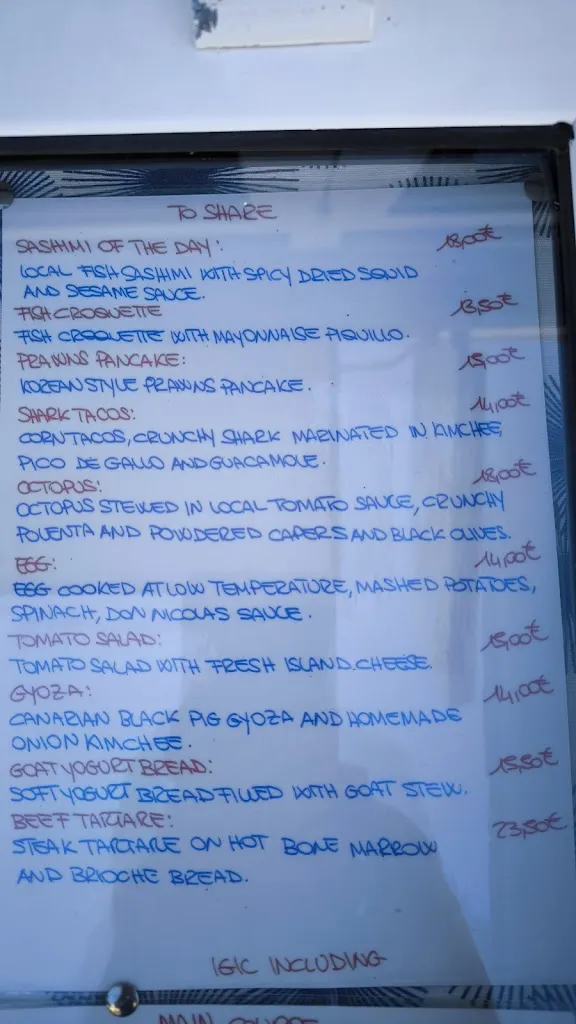 TO SHARE
SASHIMI OF THE DAY: 18,00€
LOCAL FISH SASHIMI WITH SPICY DRIED SQUID
AND SESAME SAUCE.
FISH CROQUETTE 13,50€
FISH CROQUETTE WITH MAYONNAISE PIQUILLO.
PRAWNS PANCAKE: 15,00€
KOREAN STYLE PRAWNS PANCAKE.
SHARK TACOS: 14,00€
CORN TACOS, CRUNCHY SHARK MARINATED IN KIMCHEE,
PICO DE GALLO AND GUACAMOLE.
OCTOPUS: 18,00€
OCTOPUS STEWED IN LOCAL TOMATO SAUCE, CRUNCHY
POLENTA AND POWDERED CAPERS AND BLACK OLIVES.
EGG: 14,00€
EGG COOKED AT LOW TEMPERATURE, MASHED POTATOES,
SPINACH, DON NICOLAS SAUCE.
TOMATO SALAD: 15,00€
TOMATO SALAD WITH FRESH ISLAND CHEESE.
GYOZA: 14,00€
CANARIAN BLACK PIG GYOZA AND HOMEMADE
ONION KIMCHEE.
GOAT YOGURT BREAD: 15,50€
SOFT YOGURT BREAD FILLED WITH GOAT STEW.
BEEF TARTARE: 23,50€
STEAK TARTARE ON HOT BONE MARROW
AND BRIOCHE BREAD.
IGIC INCLUDING
MAIN COURSE